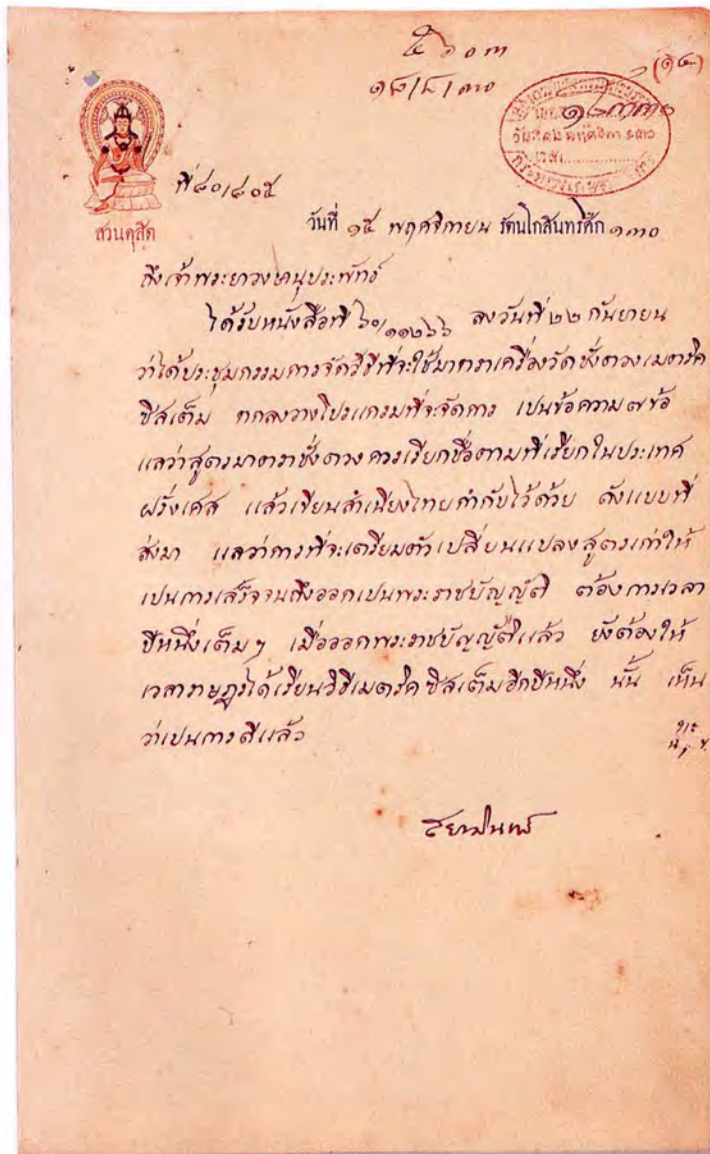 (๑๔)
สวนดุสิต
ที่ ๘๐/๘๐๕
วันที่ ๑๕ พฤศจิกายน รัตนโกสินทรศก ๑๓๐
ถึงเจ้าพระยาวงษานุประพัทธ์
ได้รับหนังสือที่ ๖๐/๑๑๒๖๖ ลงวันที่ ๒๒ กันยายน
ว่าได้ประชุมกรรมการจัดวิธีที่จะใช้มาตราเครื่องวัดชั่งตวงเมตริค
ซิสเต็ม ตกลงวางโปรแกรมที่จะจัดการ เปนข้อความ ๗ ข้อ
แลว่าสูตรมาตราชั่งตวง ควรเรียกชื่อตามที่เรียกในประเทศ
ฝรั่งเศส แล้วเขียนสำเนียงไทยกำกับไว้ด้วย ดังแบบที่
ส่งมา แลว่าการที่จะเตรียมตัวเปลี่ยนแปลงสูตรเก่าให้
เปนการเสร็จจนถึงออกเปนพระราชบัญญัติ ต้องการเวลา
ปีหนึ่งเต็มๆ เมื่อออกพระราชบัญญัติแล้ว ยังต้องให้
เวลาราษฎรได้เรียนวิธีเมตริคซิสเต็มอีกปีหนึ่ง นั้น เห็น
ว่าเปนการดีแล้ว
สยามินทร์